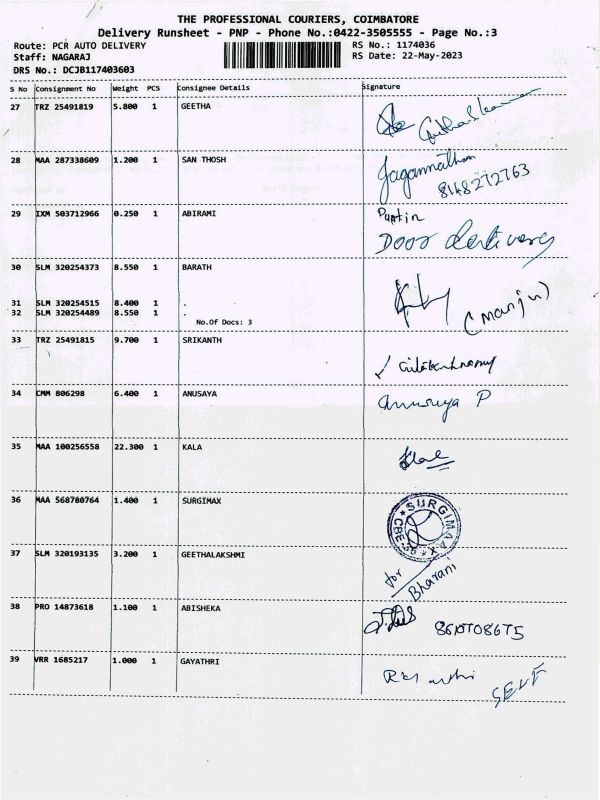 THE PROFESSIONAL COURIERS, COIMBATORE
Delivery Runsheet - PNP - Phone No.:0422-3505555 - Page No.:3
Route: PCR AUTO DELIVERY RS No.: 1174036
Staff: NAGARAJ RS Date: 22-May-2023
DRS No.: DCJB117403603
S No Consignment No Weight PCS Consignee Details Signature
27 TRZ 25491819 5.800 1 GEETHA
28 MAA 287338609 1.200 1 SAN THOSH Jagannathan
8148272763
29 IXM 503712966 0.250 1 ABIRAMI
Door
30 SLM 320254373 8.550 1 BARATH
31 SLM 320254515 8.400 1 .
32 SLM 320254489 8.550 1 . (Manju)
No.Of Docs: 3
33 TRZ 25491815 9.700 1 SRIKANTH
34 CMM 806298 6.400 1 ANUSAYA Anusuya P
35 MAA 100256558 22.300 1 KALA
36 MAA 568780764 1.400 1 SURGIMAX SURGIMAXX
37 SLM 320193135 3.200 1 GEETHALAKSHMI for
Bharani
38 PRO 14873618 1.100 1 ABISHEKA
39 VRR 1685217 1.000 1 GAYATHRI SELF